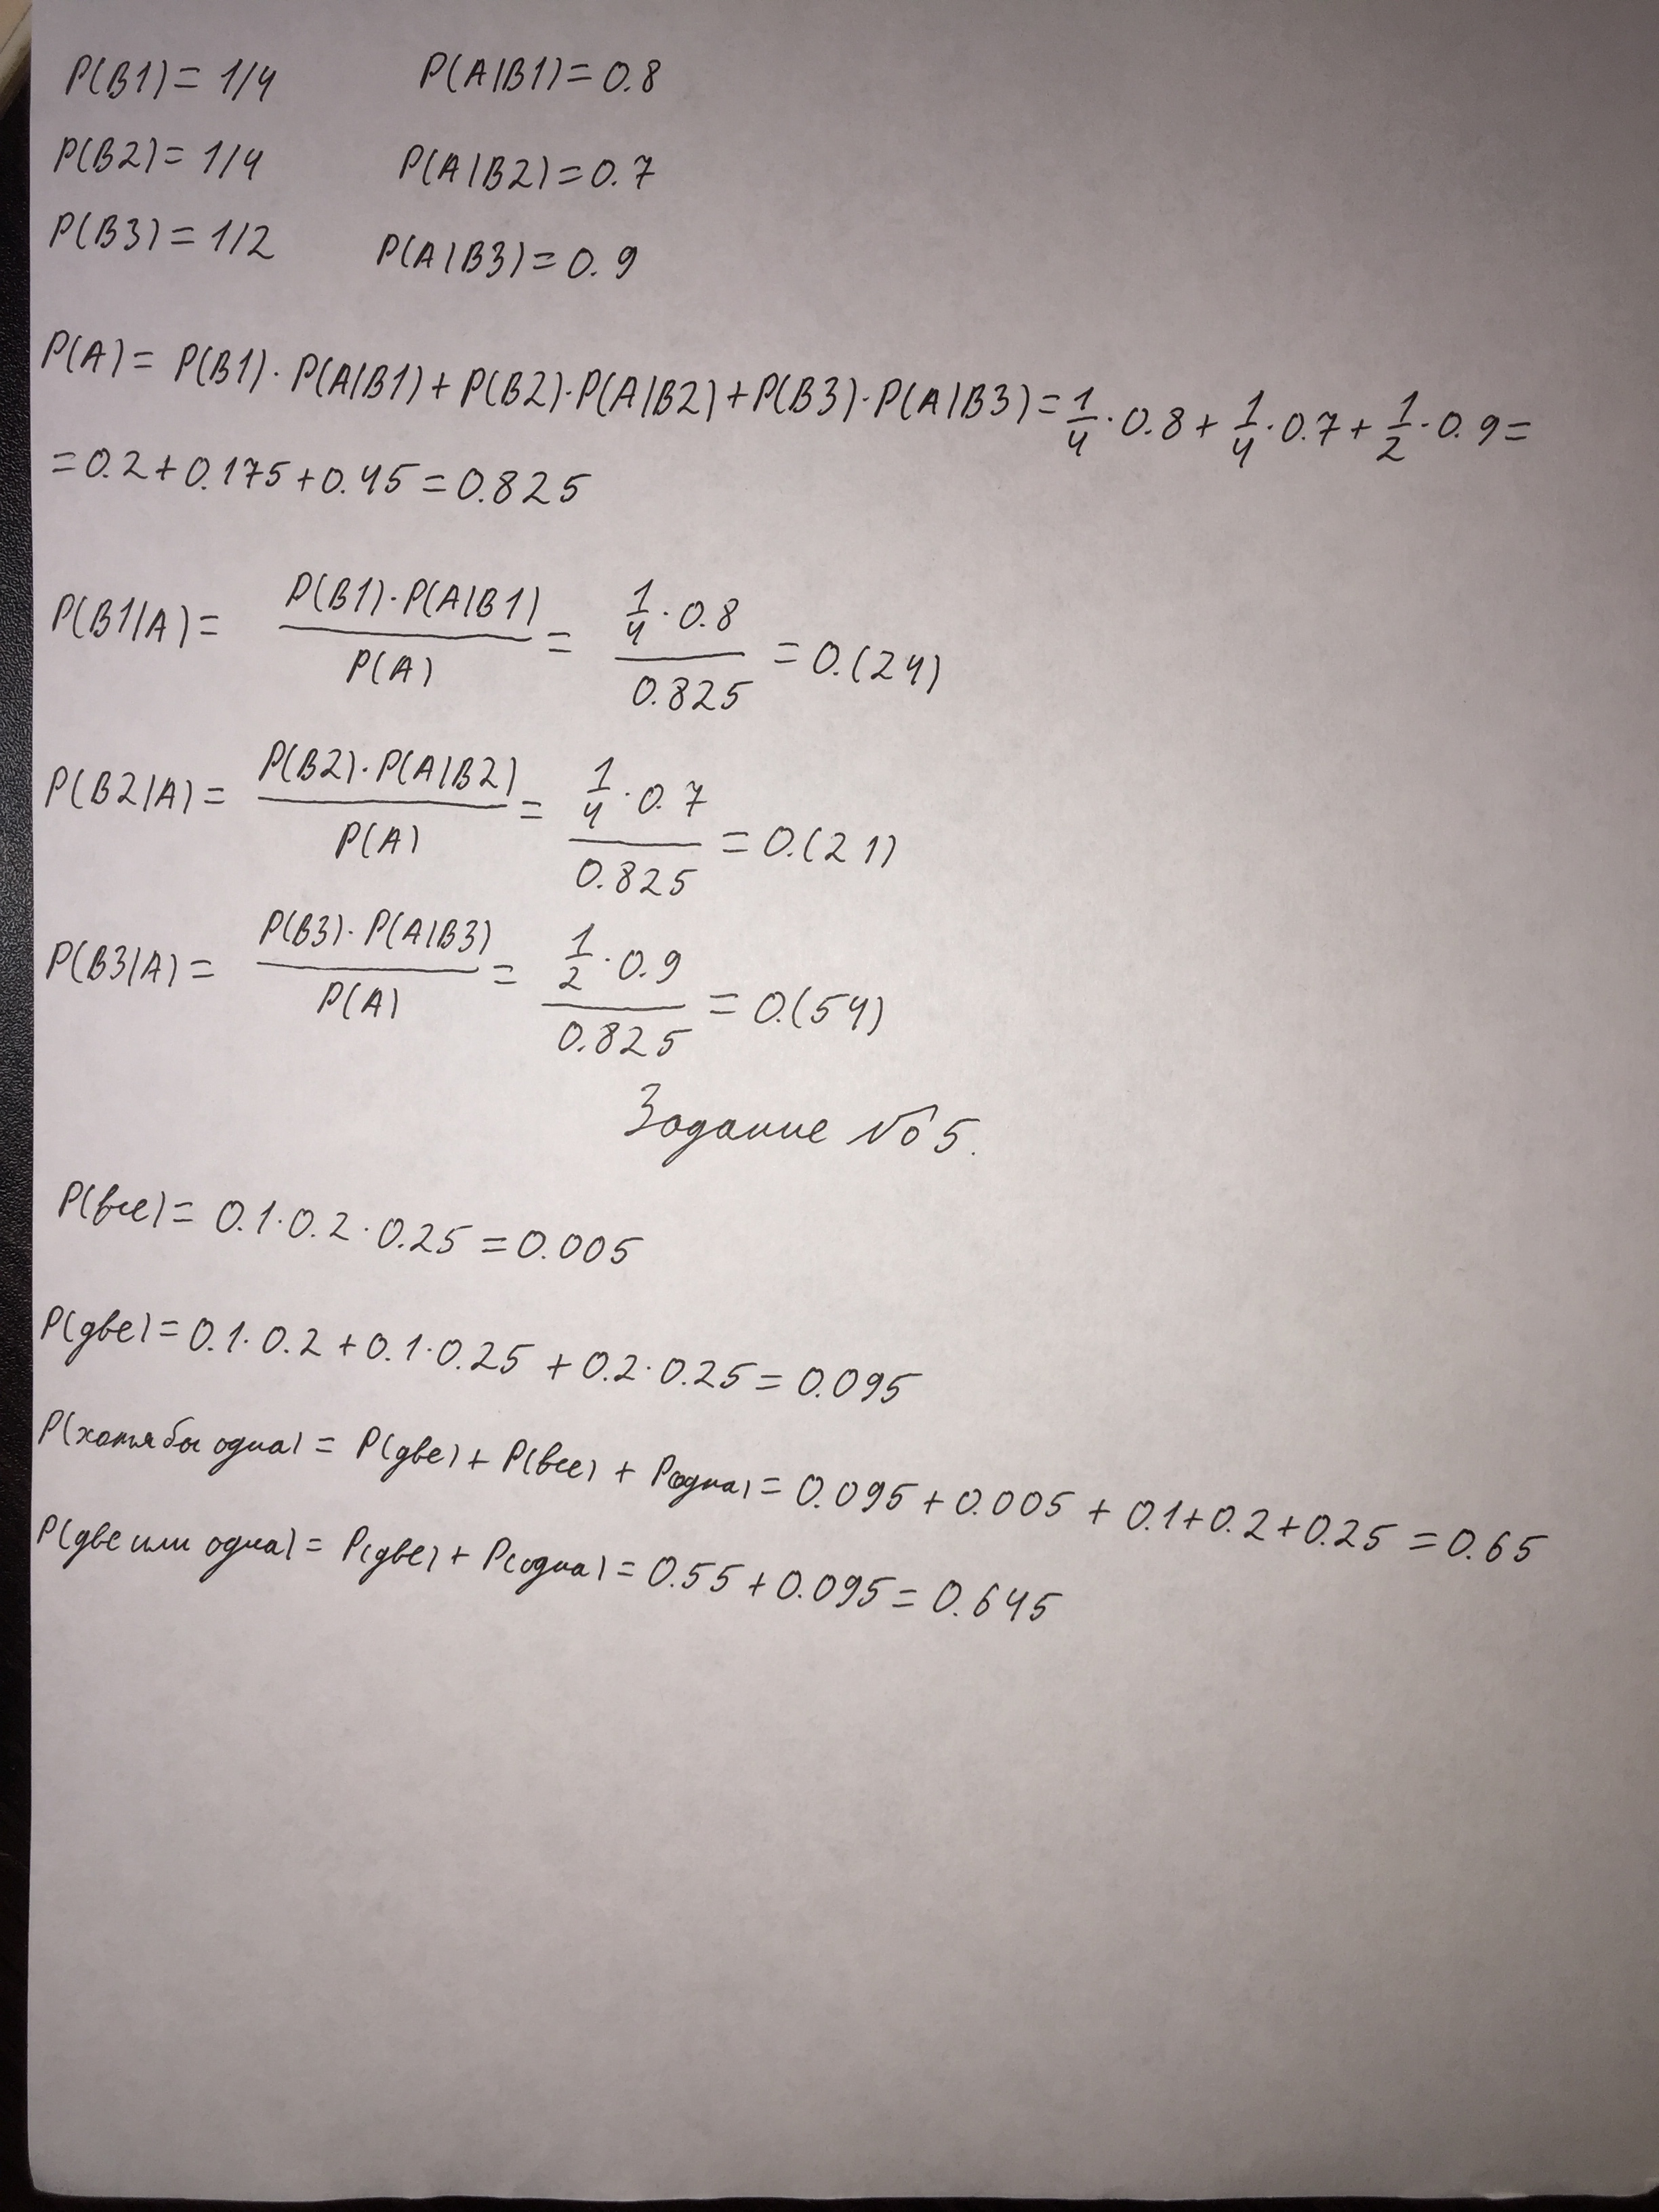 P(B1) = 1/4 P(A|B1) = 0.8
P(B2) = 1/4 P(A|B2) = 0.7
P(B3) = 1/2 P(A|B3) = 0.9
P(A) = P(B1) · P(A|B1) + P(B2) · P(A|B2) + P(B3) · P(A|B3) = 1/4 · 0.8 + 1/4 · 0.7 + 1/2 · 0.9 =
= 0.2 + 0.175 + 0.45 = 0.825
P(B1|A) = P(B1) · P(A|B1) / P(A) = 1/4 · 0.8 / 0.825 = 0.(24)
P(B2|A) = P(B2) · P(A|B2) / P(A) = 1/4 · 0.7 / 0.825 = 0.(21)
P(B3|A) = P(B3) · P(A|B3) / P(A) = 1/2 · 0.9 / 0.825 = 0.(54)
Задание №5.
P(все) = 0.1 · 0.2 · 0.25 = 0.005
P(две) = 0.1 · 0.2 + 0.1 · 0.25 + 0.2 · 0.25 = 0.095
P(хотя бы одна) = P(две) + P(все) + P(одна) = 0.095 + 0.005 + 0.1 + 0.2 + 0.25 = 0.65
P(две или одна) = P(две) + P(одна) = 0.55 + 0.095 = 0.645